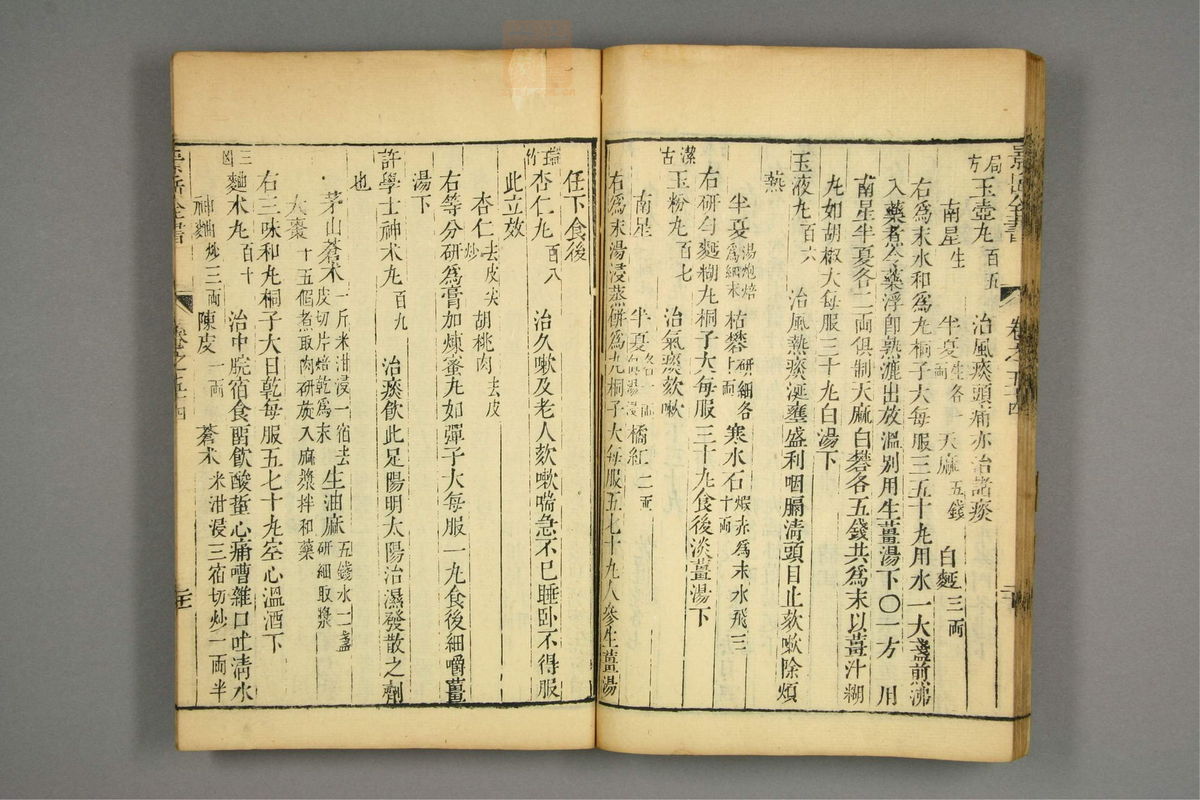 景岳全書
卷之五十四
局方 玉壺丸 百五 治風痰頭痛亦治諸痰
南星 生 半夏 生各一兩 天麻 五錢 白麪 三兩
右爲末水和爲丸桐子大每服三五十丸用水一大盞煎沸
入藥煮令藥浮卽熟漉出放溫別用生薑湯下〇一方 用
南星半夏各二兩俱制天麻白礬各五錢共爲末以薑汁糊
丸如胡椒大每服三十丸白湯下
玉液丸 百六 治風熱痰涎壅盛利咽膈淸頭目止欬嗽除煩
熱
半夏 湯炮焙爲細末 枯礬 研細各十兩 寒水石 煆赤爲末水飛三十兩
右研勻麪糊丸桐子大每服三十丸食後淡薑湯下
潔古 玉粉丸 百七 治氣痰欬嗽
南星 半夏 各一兩俱湯浸 橘紅 二兩
右爲末湯浸蒸餠爲丸桐子大每服五七十丸人參生薑湯
任下食後
瑞竹 杏仁丸 百八 治久嗽及老人欬嗽喘急不已睡卧不得服
此立效
杏仁 去皮尖炒 胡桃肉 去皮
右等分研爲膏加煉蜜丸如彈子大每服一丸食後細嚼薑
湯下
許學士神朮丸 百九 治痰飮此足陽明太陽治濕發散之劑
也
茅山蒼朮 一斤米泔浸一宿去皮切片焙乾爲末 生油麻 五錢水二盞研細取漿
大棗 十五個煮取肉研旋入麻漿拌和藥
右三味和丸桐子大日乾每服五七十丸空心溫酒下
三因 麯朮丸 百十 治中脘宿食畱飮酸蜇心痛嘈雜口吐淸水
神麯 炒三兩 陳皮 一兩 蒼朮 米泔浸三宿切炒一兩半
景岳全書
卷之五十四